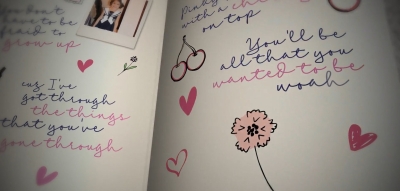 you don't
have to be
afraid to
grow up
cuz I've
got through
the things
that you've
gone through
Pinky
with a
on top
You'll be
all that you
wanted to be
woah